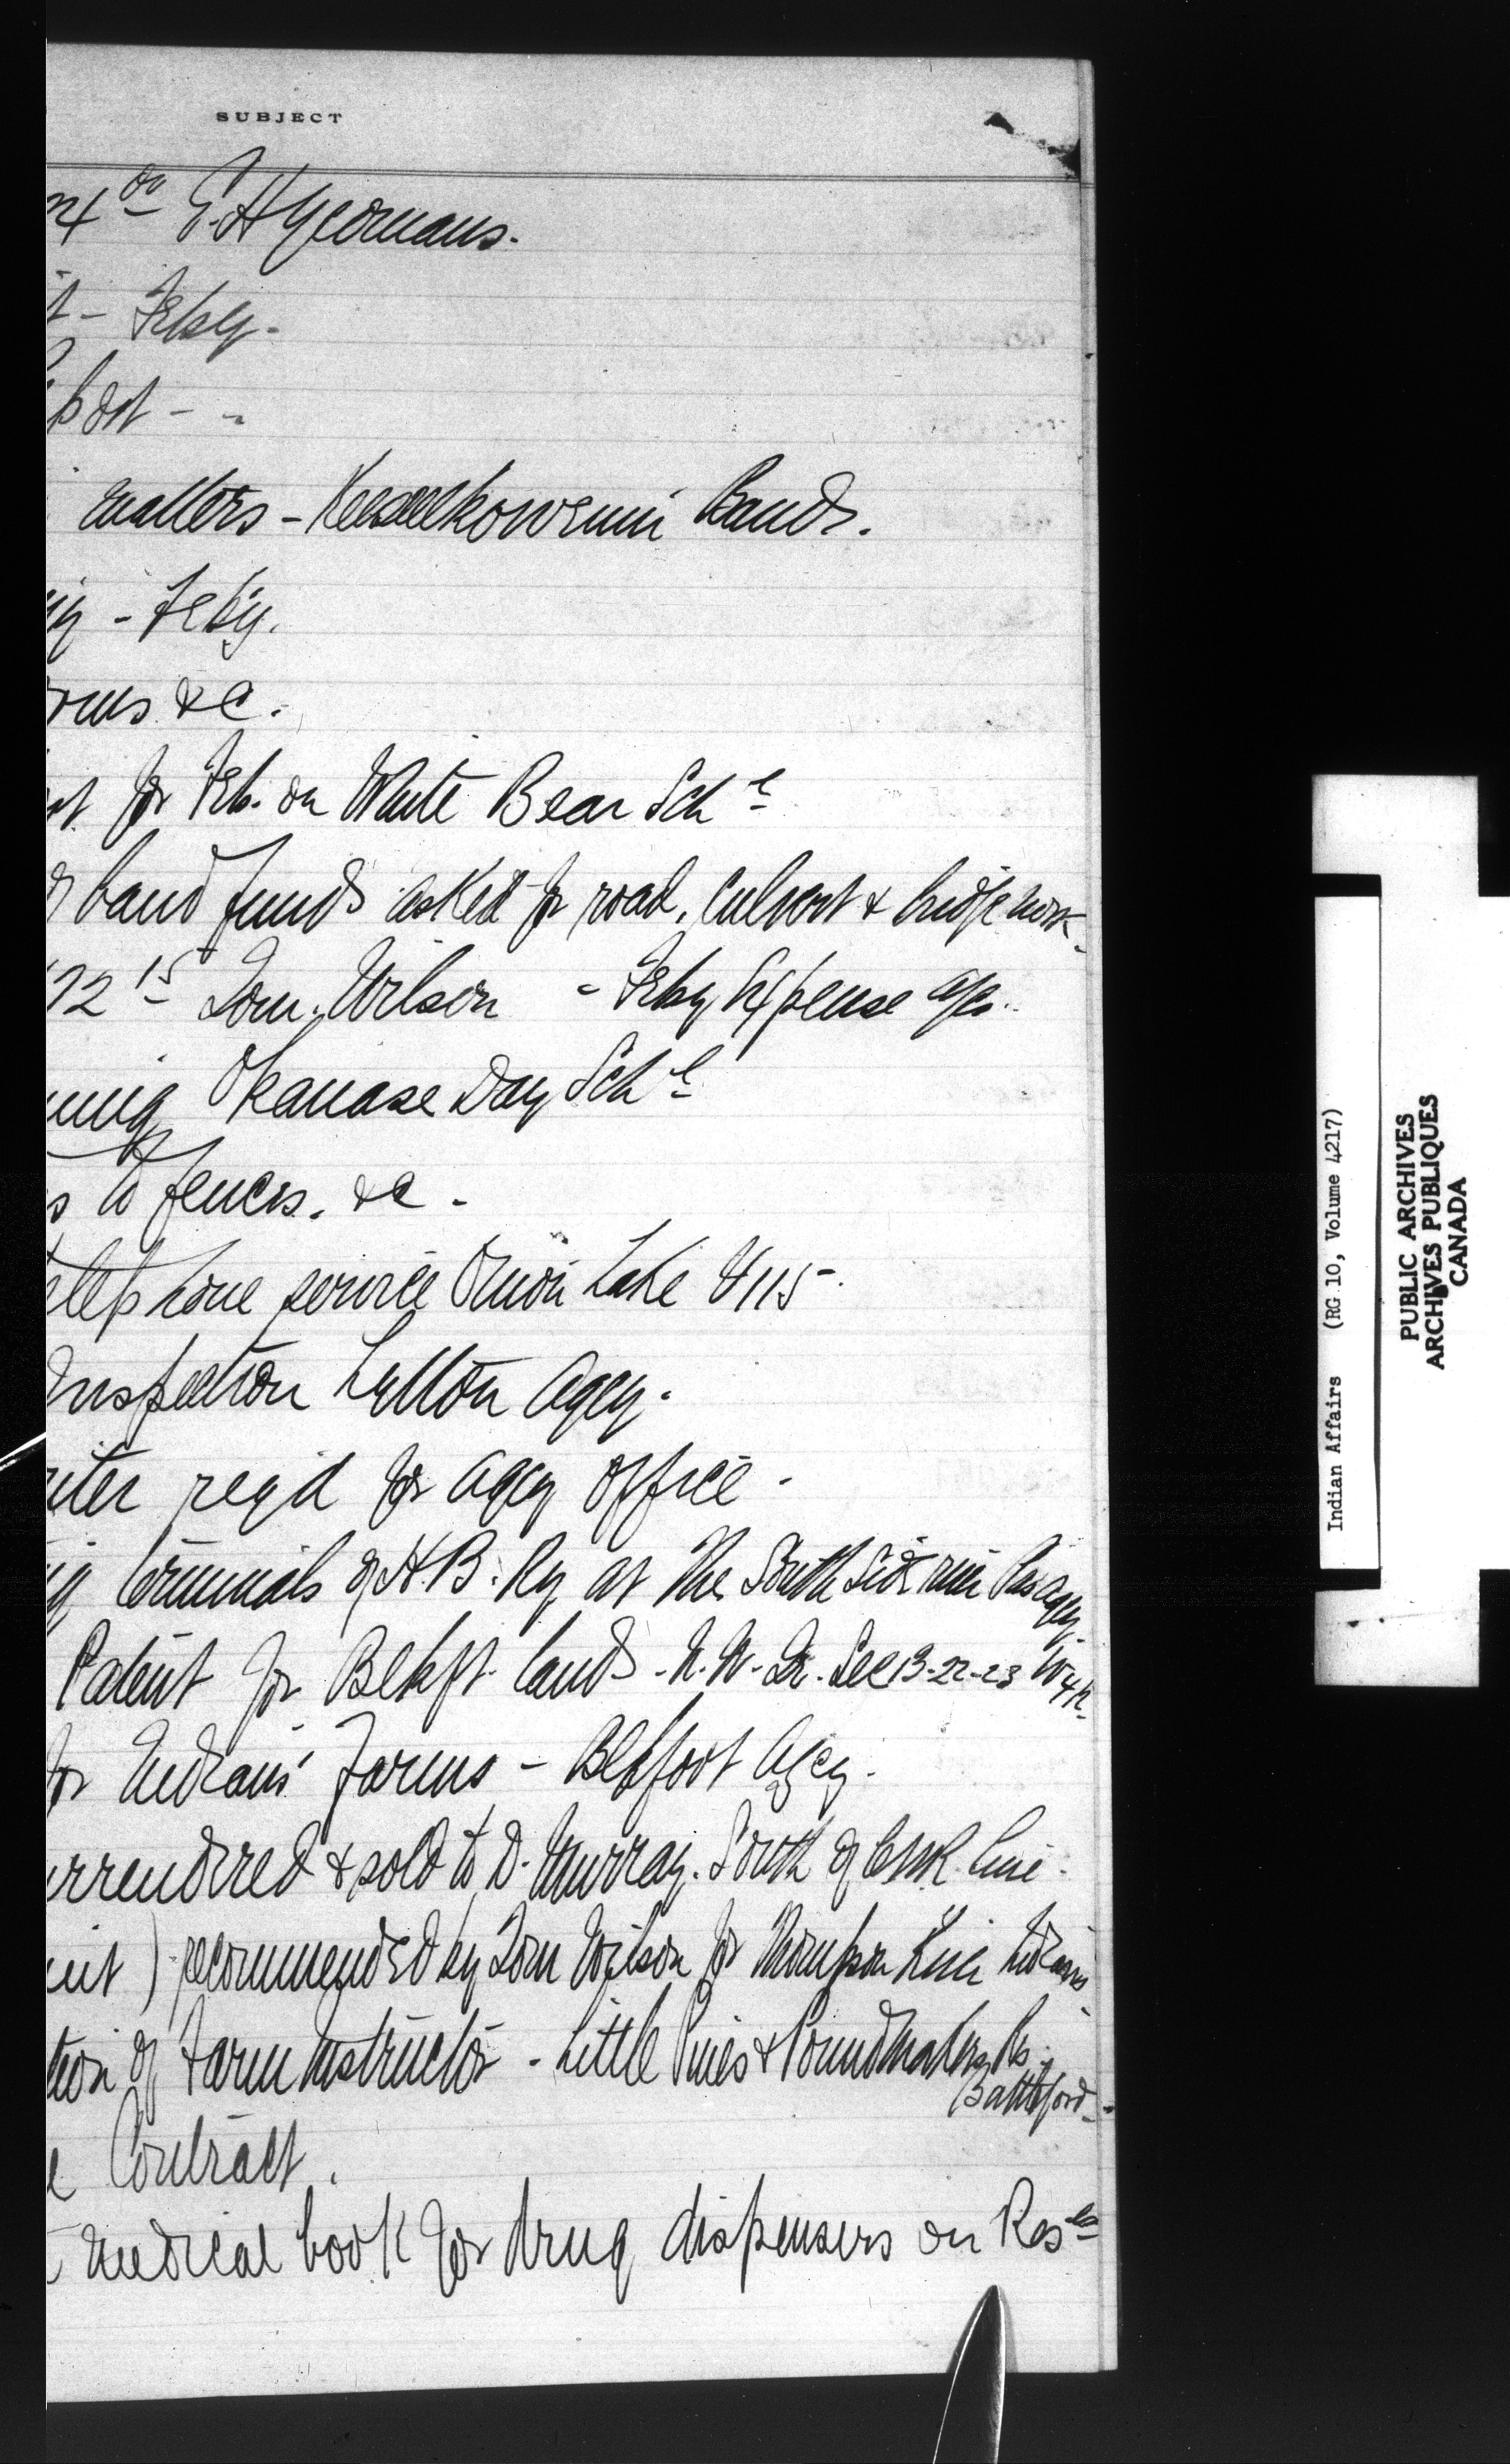 SUBJECT
E. H Yeomans.
- Feby.
matters - Keeseekowenin Band.
- Feby.
&c.
for Feb. on White Bear Sch l
band funds asked for road, culvert & bridge work
Tom. Wilson - Feby Expense a/c.
Okanase Day Sch l
s to fences. &c -
elephone service Onion Lake $115-.
Inspection Lytton Agcy.
iter reqd for Agcy office -
terminals of H. B. Ry at the South Side
Patent for Blkft. lands - N. W. Qr. Sec 13-22-23 W 4th.
for Indians' Farms - Blkfoot Agcy.
urrendered & sold to D. Murray. South of line.
) recommended by Tom Wilson for Thompson Indians
tion of Farm Instructor - Little Pines & Poundmakers Rs.
Battleford -
Contract.
medical book for drug dispensers on Res es
Indian Affairs (RG 10, Volume 4217)
PUBLIC ARCHIVES
ARCHIVES PUBLIQUES
CANADA